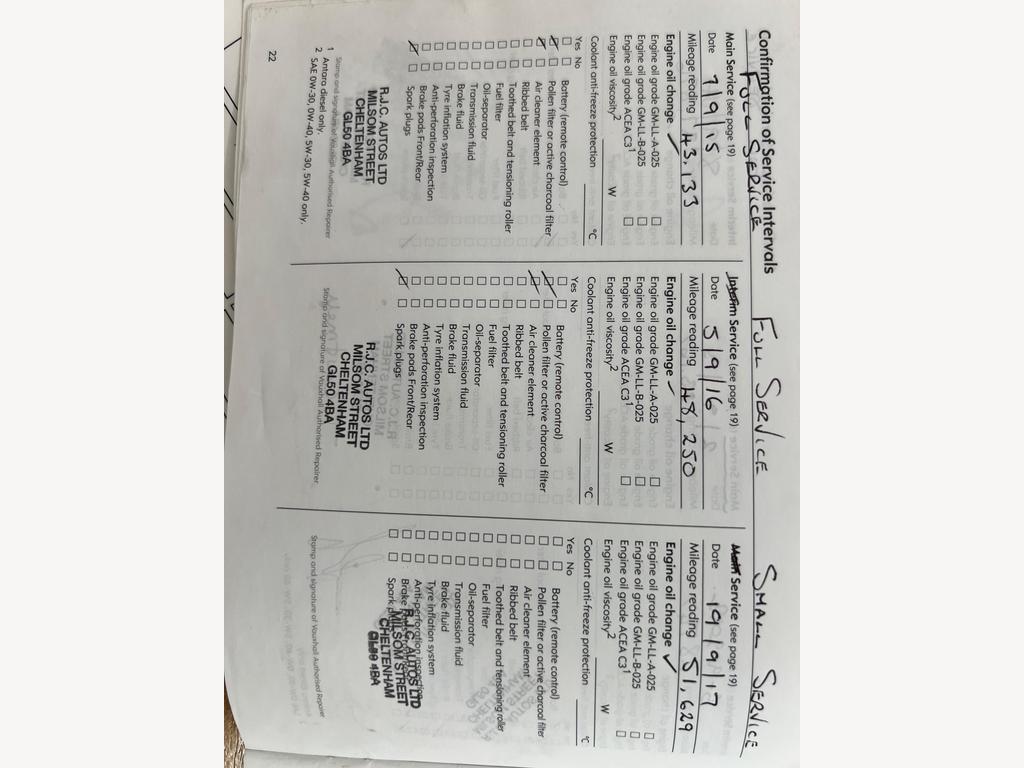 Confirmation of Service Intervals
FULL SERVICE
Main Service (see page 19)
Date 7/9/15
Mileage reading 43,133
Engine oil change ✓
Engine oil grade GM-LL-A-025 ☐
Engine oil grade GM-LL-B-025 ☐
Engine oil grade ACEA C3¹ ☐
Engine oil viscosity² W
Coolant anti-freeze protection °C
Yes No
Battery (remote control)
Pollen filter or active charcoal filter
Air cleaner element
Ribbed belt
Toothed belt and tensioning roller
Fuel filter
Oil-separator
Transmission fluid
Brake fluid
Tyre inflation system
Anti-perforation inspection
Brake pads Front/Rear
Spark plugs
R.J.C. AUTOS LTD
MILSOM STREET
CHELTENHAM
GL50 4BA
Stamp and signature of Vauxhall Authorised Repairer
1 Antara diesel only.
2 SAE 0W-30, 0W-40, 5W-30, 5W-40 only.
22
FULL SERVICE
Interim Service (see page 19)
Date 5/9/16
Mileage reading 48,250
Engine oil change ✓
Engine oil grade GM-LL-A-025 ☐
Engine oil grade GM-LL-B-025 ☐
Engine oil grade ACEA C3¹ ☐
Engine oil viscosity² W
Coolant anti-freeze protection °C
Yes No
Battery (remote control)
Pollen filter or active charcoal filter
Air cleaner element
Ribbed belt
Toothed belt and tensioning roller
Fuel filter
Oil-separator
Transmission fluid
Brake fluid
Tyre inflation system
Anti-perforation inspection
Brake pads Front/Rear
Spark plugs
R.J.C. AUTOS LTD
MILSOM STREET
CHELTENHAM
GL50 4BA
Stamp and signature of Vauxhall Authorised Repairer
SMALL SERVICE
Main Service (see page 19)
Date 19/9/17
Mileage reading 51,629
Engine oil change ✓
Engine oil grade GM-LL-A-025 ☐
Engine oil grade GM-LL-B-025 ☐
Engine oil grade ACEA C3¹ ☐
Engine oil viscosity² W
Coolant anti-freeze protection °C
Yes No
Battery (remote control)
Pollen filter or active charcoal filter
Air cleaner element
Ribbed belt
Toothed belt and tensioning roller
Fuel filter
Oil-separator
Transmission fluid
Brake fluid
Tyre inflation system
Anti-perforation inspection
Brake pads Front/Rear
Spark plugs
R.J.C. AUTOS LTD
MILSOM STREET
CHELTENHAM
GL50 4BA
Stamp and signature of Vauxhall Authorised Repairer